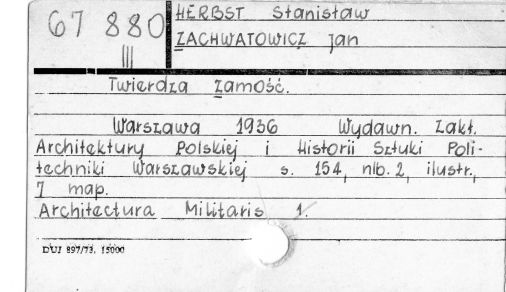 67 880
III
HERBST Stanisław
ZACHWATOWICZ Jan
Twierdza Zamość.
Warszawa 1936 Wydawn. Zakł.
Architektury Polskiej i Historii Sztuki Poli-
techniki Warszawskiej s. 154, nlb. 2, ilustr.,
7 map.
Architectura Militaris 1.
DUJ 897/73. 15000